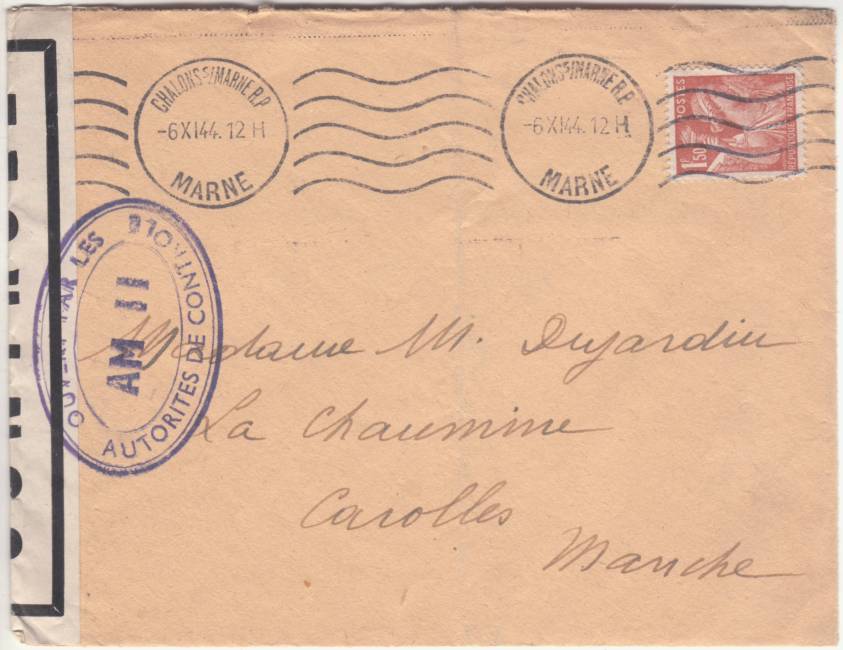 CHALONS S/MARNE R.P
-6 XI 44. 12 H
MARNE
CHALONS S/MARNE R.P
-6 XI 44. 12 H
MARNE
POSTES
1F50
REPUBLIQUE FRANCAISE
OUVERT PAR LES
AUTORITES DE CONTROLE
AM 11
Madame M. Dujardin
La Chaumine
Carolles
Manche